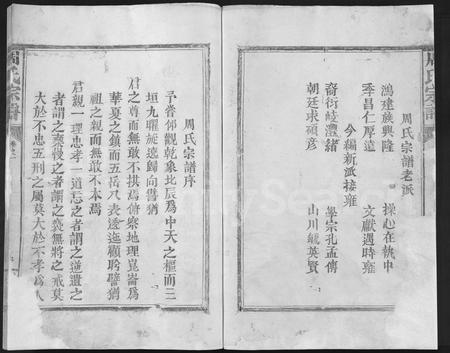 周氏宗譜
周氏宗譜老派
鴻建族興隆 操心在執中
季昌仁厚遠 文獻遇時雍
今編新派接雍
裔衍岐灃緒 學宗孔孟傳
朝廷求碩彥 山川毓英賢
周氏宗譜序
予嘗仰觀乾象北辰為中天之樞而三
垣九曜旋遶歸向譬猶
君之尊而無敢不拱焉俯察地理崑崙為
華夏之鎮而五岳八表透迤顧盻譬猶
祖之親而無敢不本焉
君親一理忠孝一道忘之者謂之逆遺之
者謂之棄慢之者謂之褻無將之戒莫
大於不忠五刑之屬莫大於不孝為人
周氏宗譜
卷之